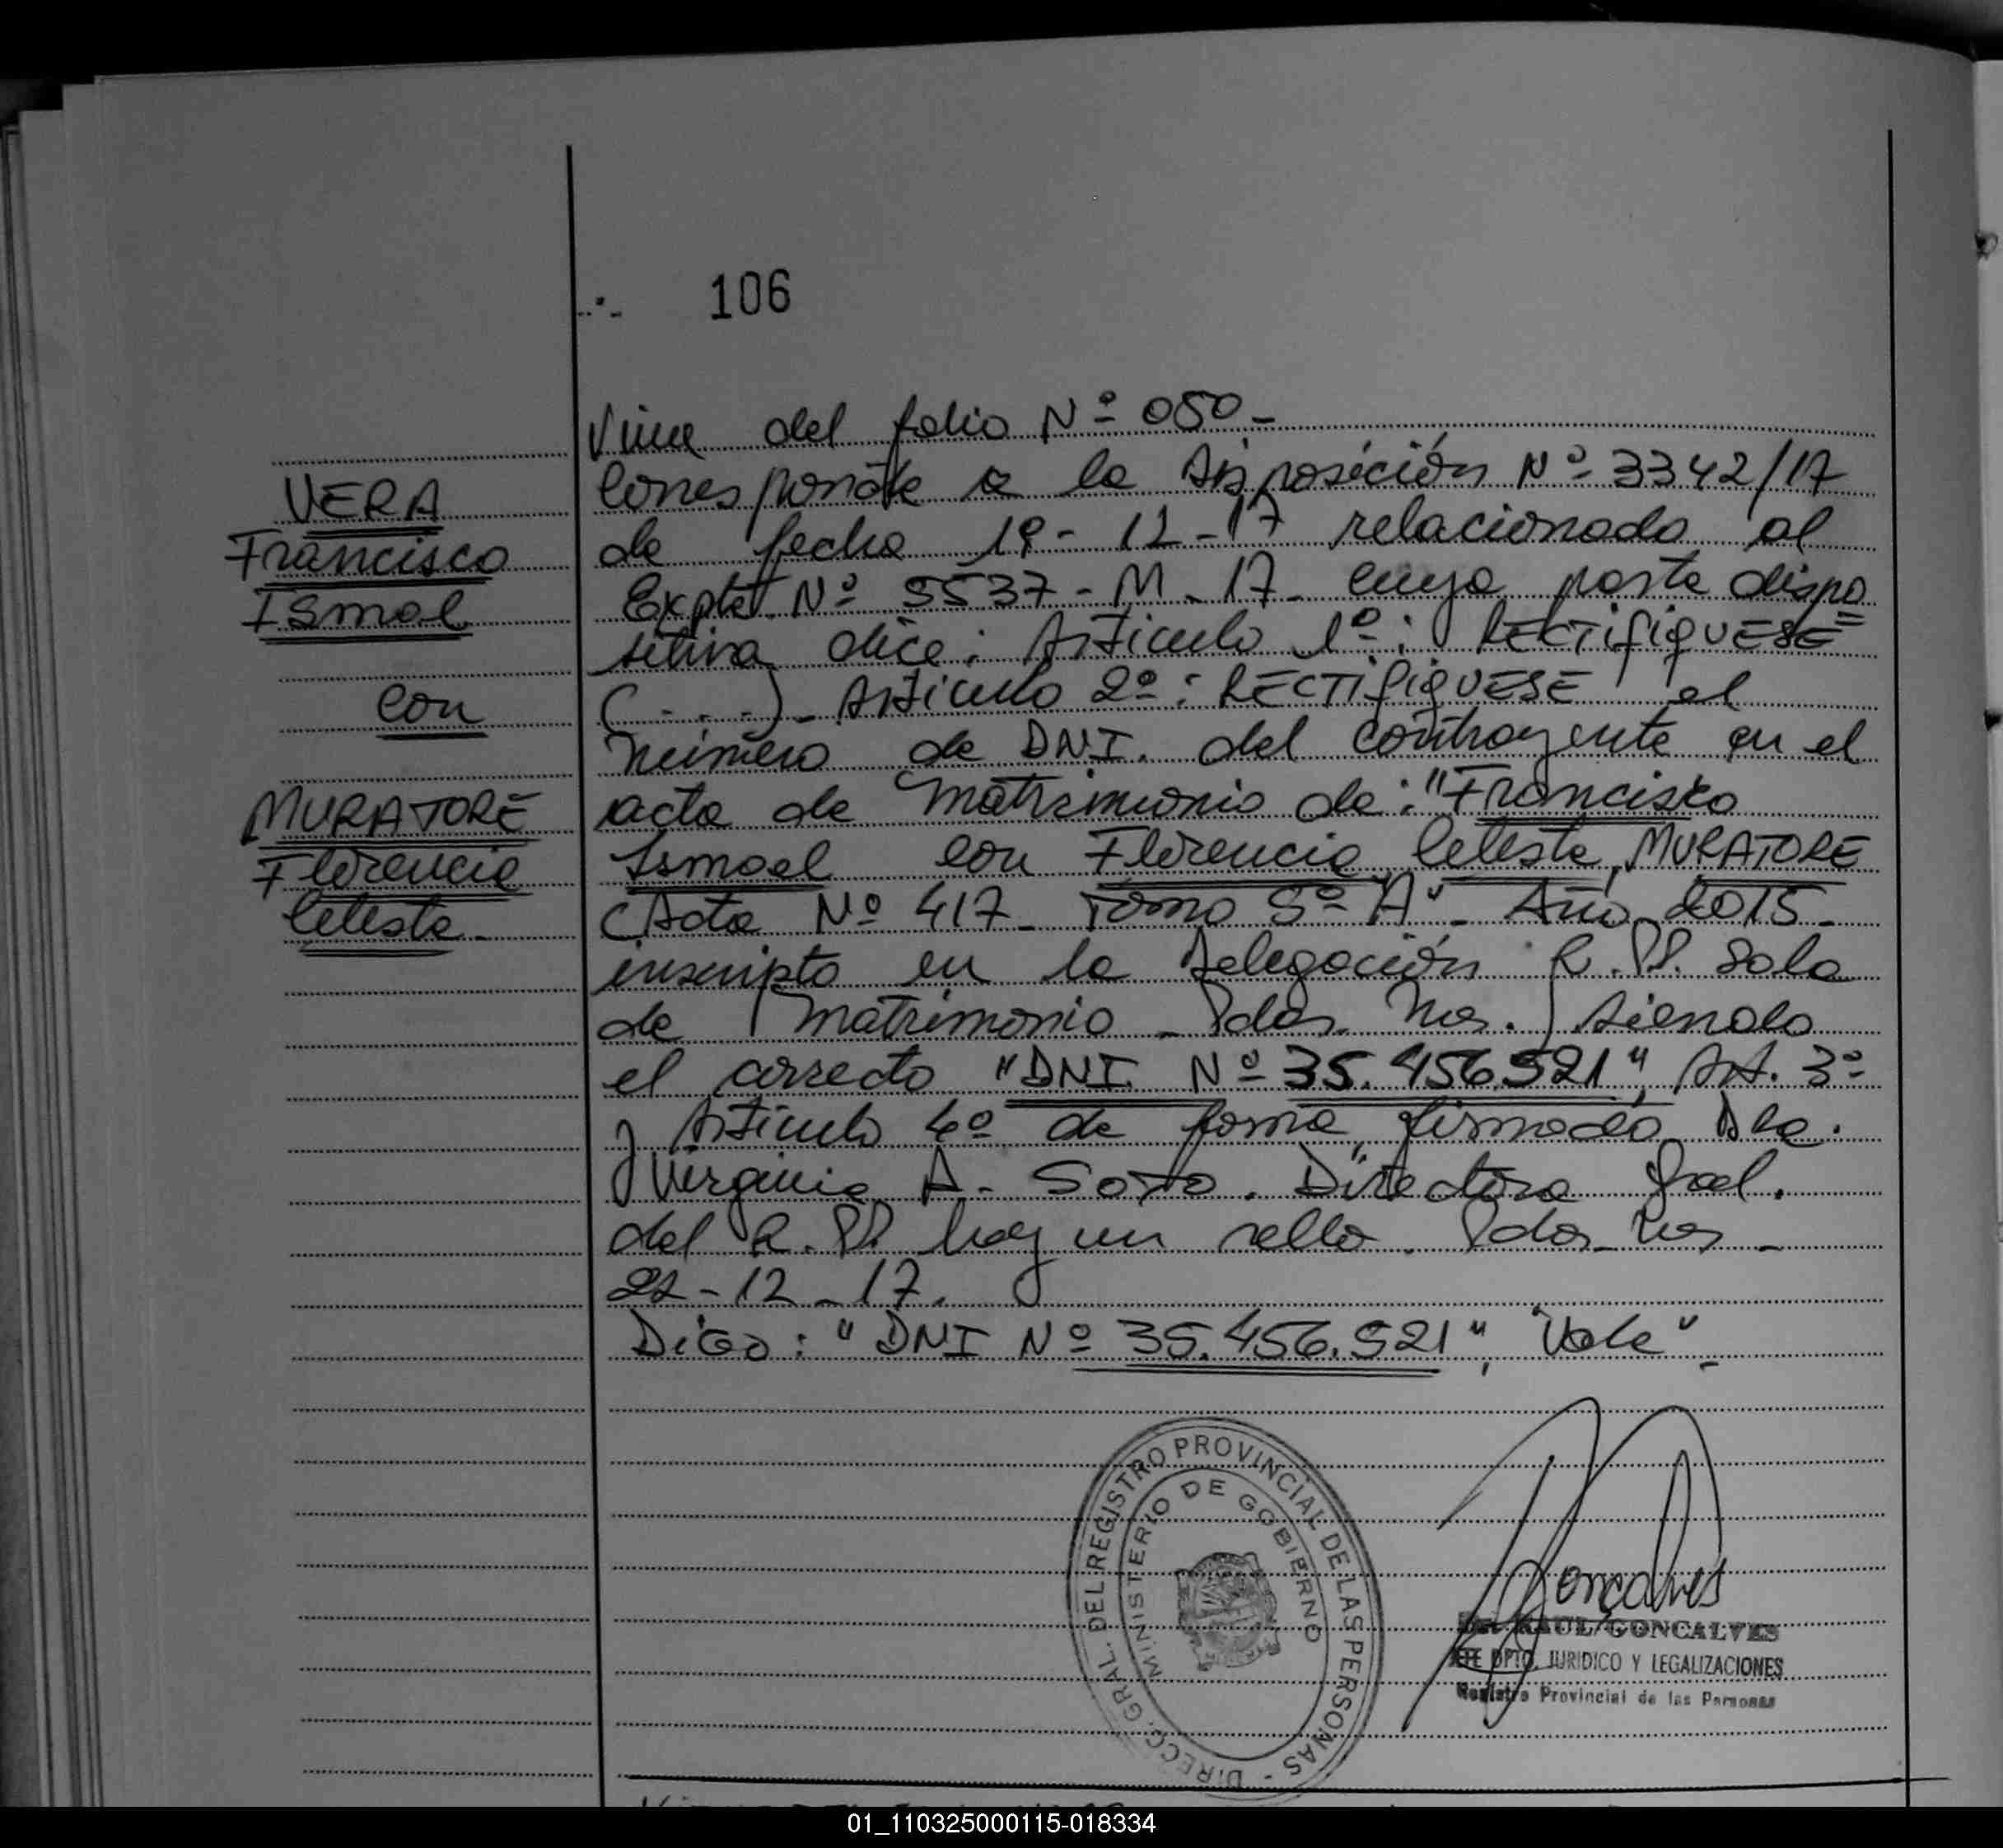 106
Viene del folio Nº 050-
VERA
Francisco
Ismael
con
MURATORE
Florencia
Celeste
Corresponde a la Disposición Nº 3342/17
de fecha 19-12-17 relacionado al
Expte Nº 5537-M-17- cuya parte dispo
sitiva dice: Artículo 1º: RECTIFIQUESE
(...)- Artículo 2º: RECTIFIQUESE el
número de DNI. del contrayente en el
acta de Matrimonio de: "Francisco
Ismael con Florencia Celeste MURATORE
(Acta Nº 417- Tomo 5º "A"- Año 2015-
inscripto en la Delegación R.PP. Sala
de Matrimonio - Pdas. Mnes.) siendo
el correcto "DNI. Nº 35.456.521", Art. 3º
y Artículo 4º de forma, firmado,
Virginia A. Soto. Directora Gral.
del R.PP. hay un sello. Pdas-
22-12-17.
Digo: "DNI Nº 35.456.521", "Vale"-
DIRECC. GRAL. DEL REGISTRO PROVINCIAL DE LAS PERSONAS -
MINISTERIO DE GOBIERNO
Goncalves
Dr. RAUL GONCALVES
JEFE DPTO. JURIDICO Y LEGALIZACIONES
Registro Provincial de las Personas
01_110325000115-018334